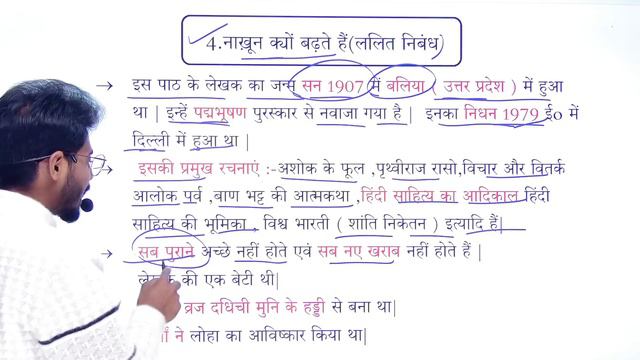 4.नाखून क्यों बढ़ते हैं(ललित निबंध)
इस पाठ के लेखक का जन्म सन 1907 में बलिया ( उत्तर प्रदेश ) में हुआ
था | इन्हें पद्मभूषण पुरस्कार से नवाजा गया है | इनका निधन 1979 ई० में
दिल्ली में हुआ था |
इसकी प्रमुख रचनाएं :-अशोक के फूल ,पृथ्वीराज रासो,विचार और वितर्क
आलोक पर्व ,वाण भट्ट की आत्मकथा ,हिंदी साहित्य का आदिकाल हिंदी
साहित्य की भूमिका , विश्व भारती ( शांति निकेतन ) इत्यादि हैं|
सब पुराने अच्छे नहीं होते एवं सब नए खराब नहीं होते हैं |
की एक बेटी थी|
व्रज दधिची मुनि के हड्डी से बना था|
ने लोहा का आविष्कार किया था|